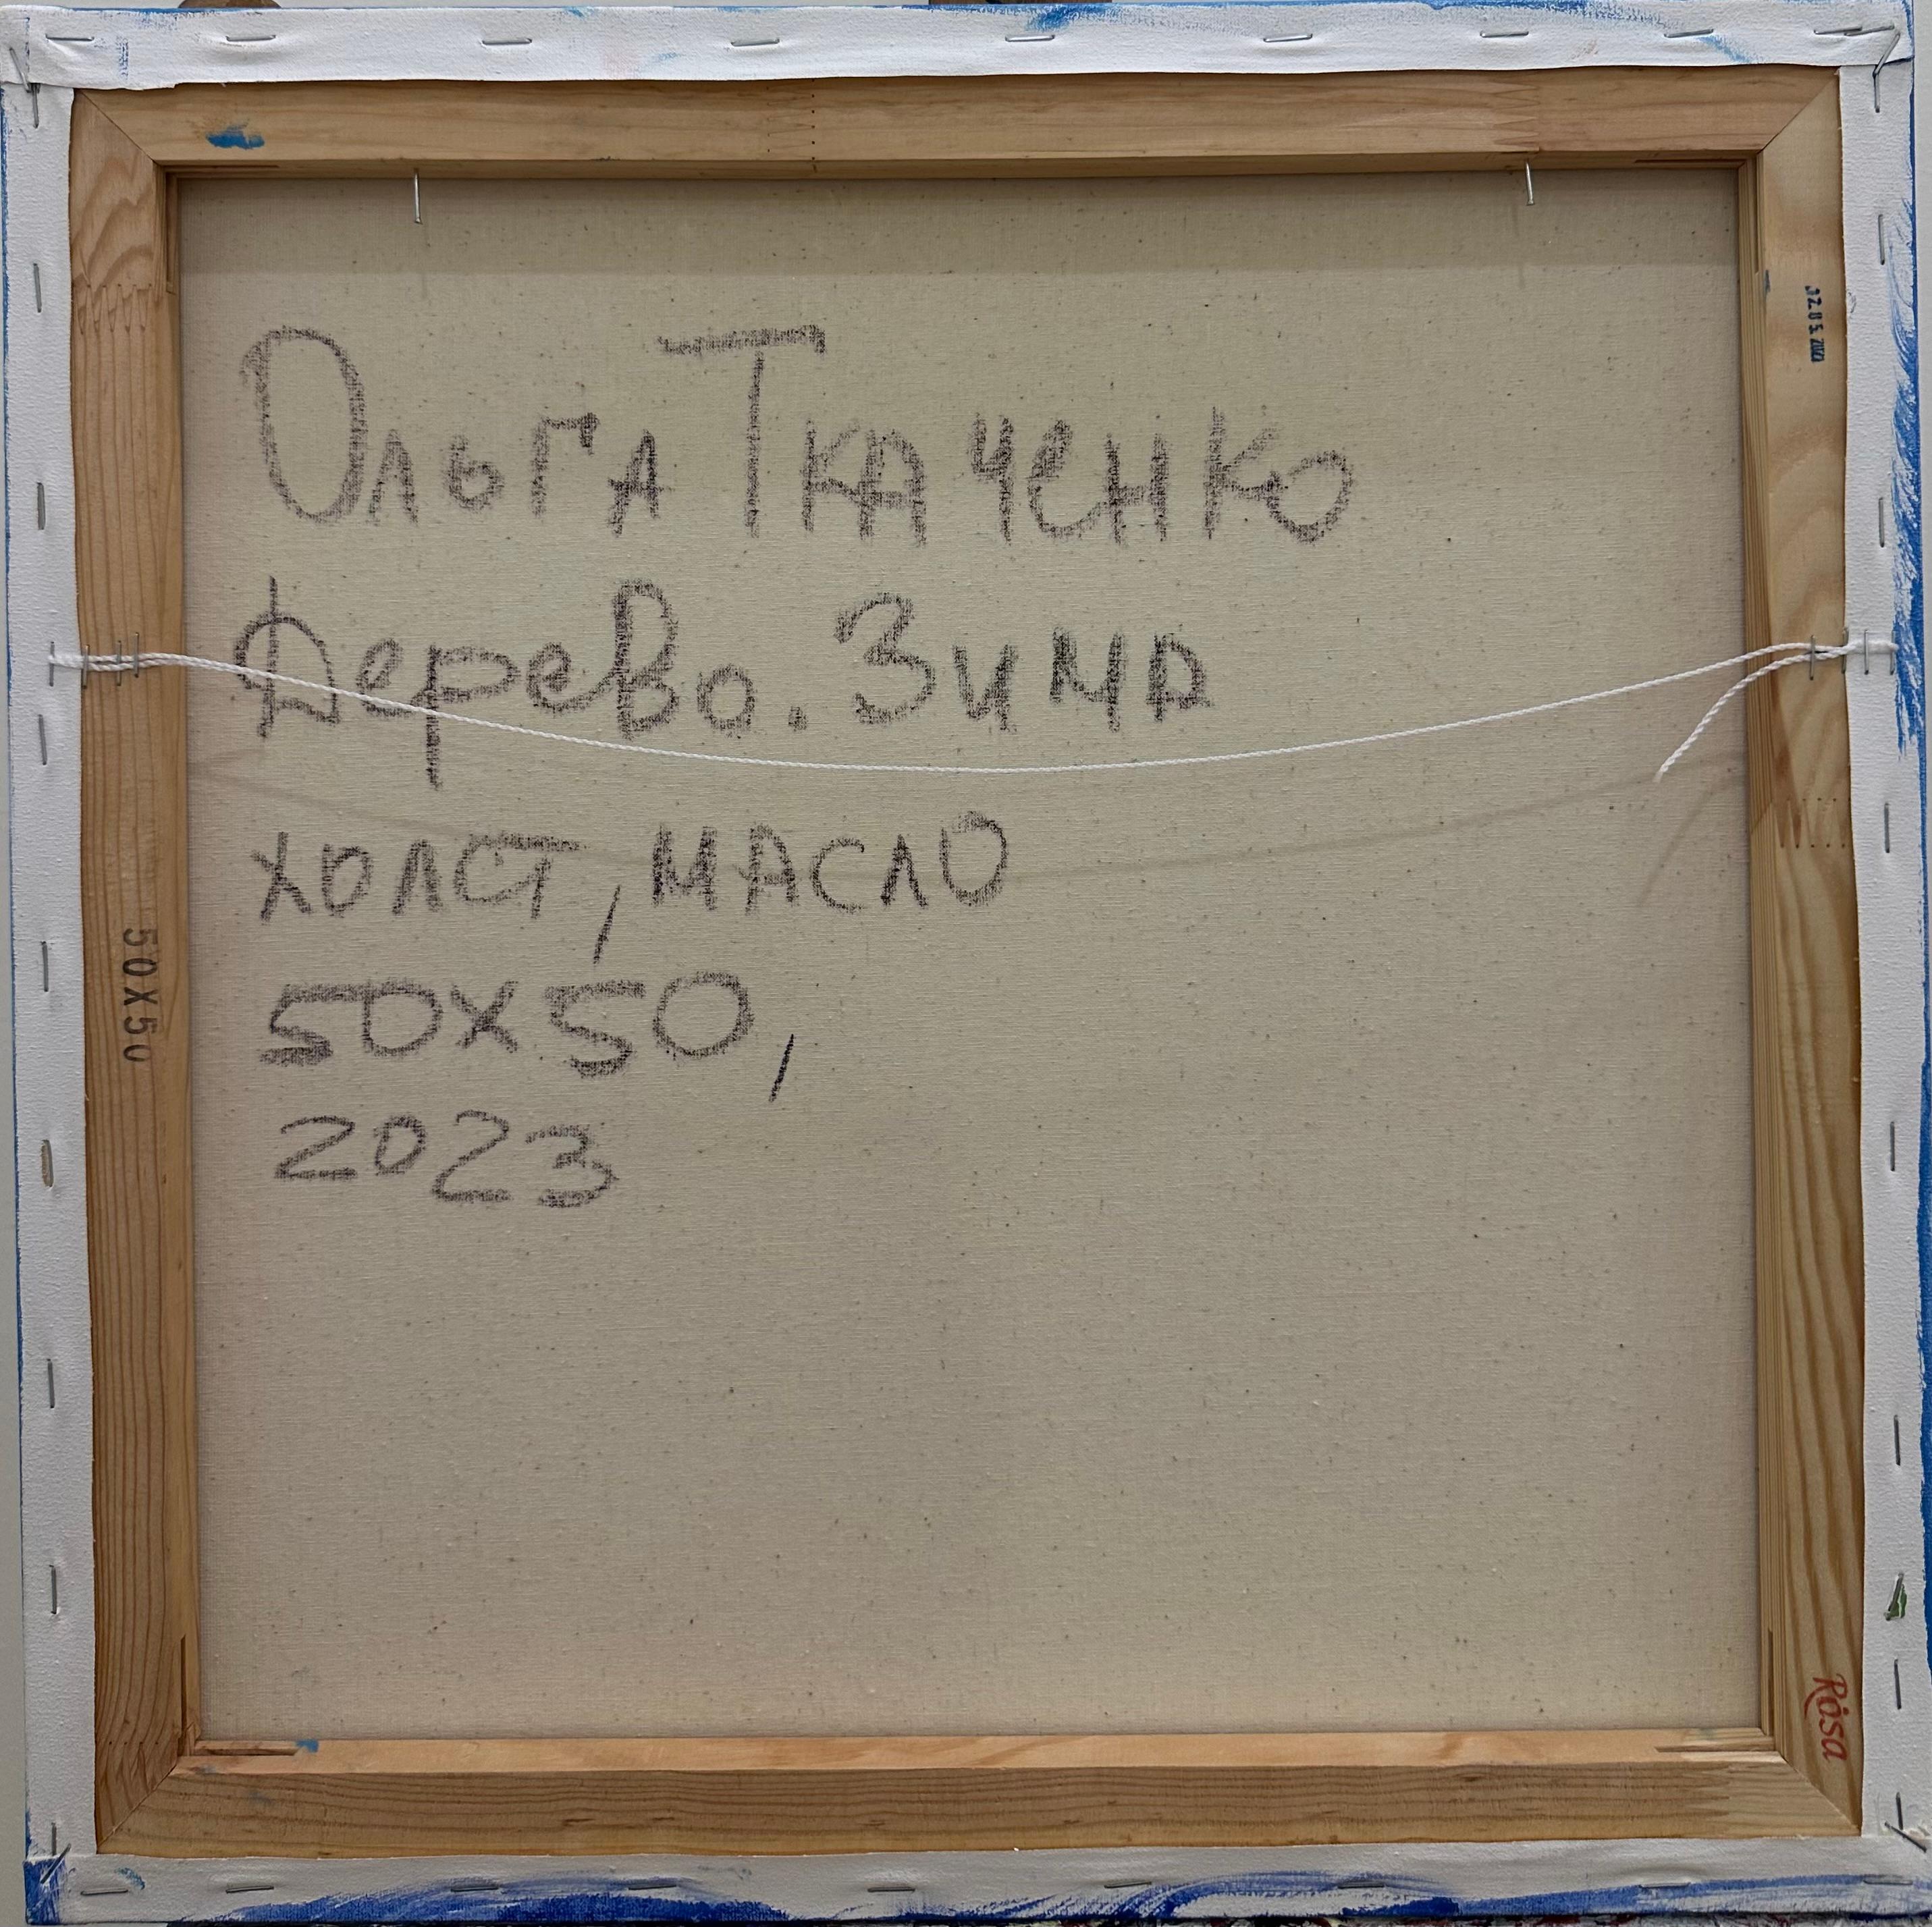 Ольга Ткаченко
Дерево. Зима
холст, масло
50х50,
2023
50X50
Rosa